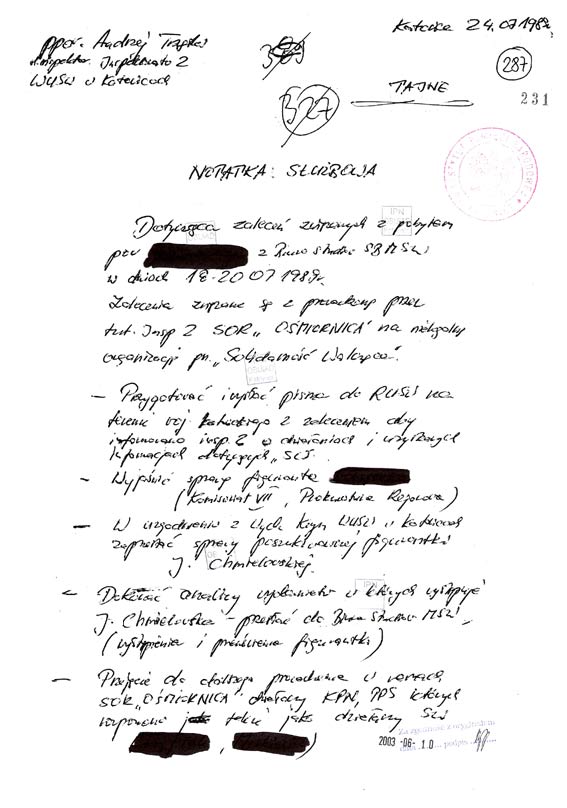 ppor. Andrzej
Katowice 24.07.1989r.
inspektor Inspektoratu 2
WUSW w Katowicach
327
287
TAJNE
231
NOTATKA SŁUŻBOWA
IPN
Dotycząca zaleceń związanych z pobytem
por z Biura Studiów SB MSW
w dniach 18-20 07 1989r.
Zalecenia związane są z prowadzoną przez
tut. Insp 2 SOR „OŚMIORNICA” na nielegalną
organizację pn. „Solidarność Walcząca”.
- Przygotować i wysłać pisma do RUSW na
terenie woj. katowickiego z zaleceniem aby
informowano insp. 2 o działaniach i uzyskanych
informacjach dotyczących „SW”.
- Wyjaśnić sprawę figuranta
(Komisariat VII, Prokuratura Rejonowa)
- W uzgodnieniu z Wydz. Krym WUSW w Katowicach
sprawy poszukiwawczej figurantki
J. Chmielowskiej.
- Dokonać analizy w których występuje
J. Chmielowska - przesłać do Biura Studiów MSW,
(wystąpienia i figurantki)
IPN
- Przyjęcie do dalszego prowadzenia w ramach
SOR „OŚMIORNICA” działaczy KPN, PPS których
także jako działaczy SW
, )
2003 -06- 10